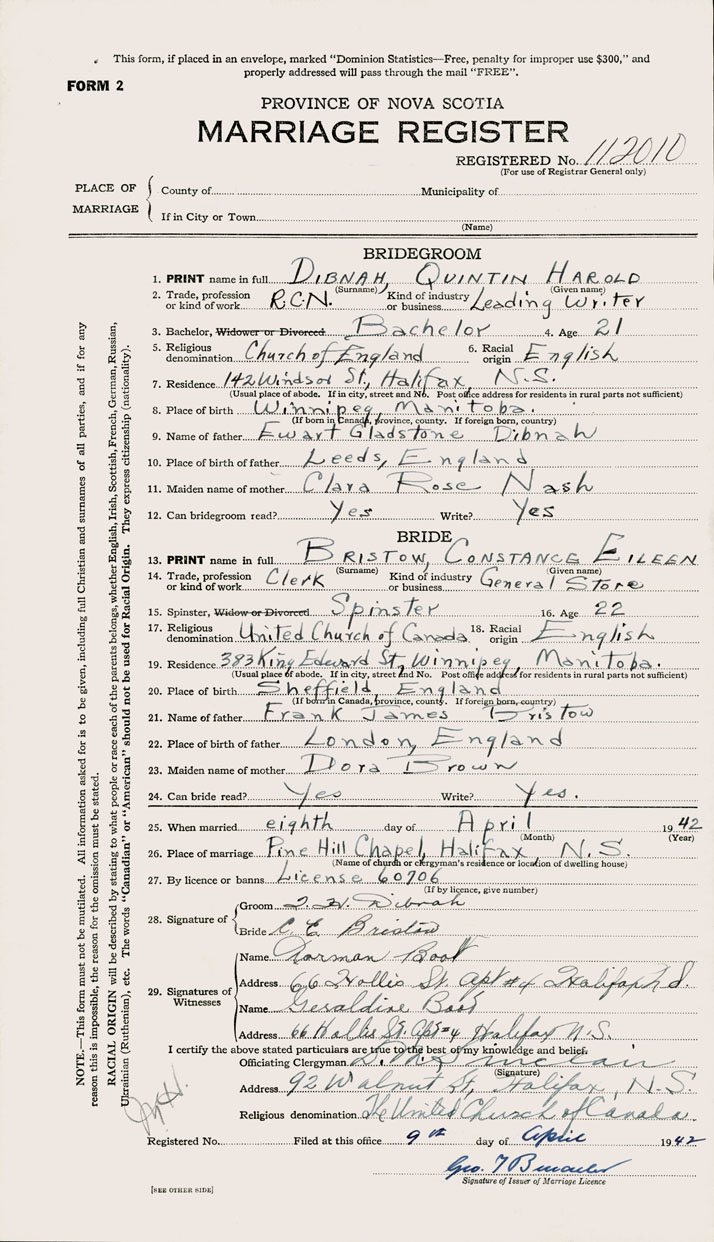 This form, if placed in an envelope, marked "Dominion Statistics—Free, penalty for improper use $300," and
properly addressed will pass through the mail "FREE".
FORM 2
PROVINCE OF NOVA SCOTIA
MARRIAGE REGISTER
REGISTERED No. 112010
(For use of Registrar General only)
PLACE OF MARRIAGE
County of Municipality of
If in City or Town
(Name)
BRIDEGROOM
1. PRINT name in full DIBNAH, QUINTIN HAROLD
(Surname) (Given name)
2. Trade, profession or kind of work R.C.N. Kind of industry or business Leading Writer
3. Bachelor, Widower or Divorced Bachelor 4. Age 21
5. Religious denomination Church of England 6. Racial origin English
7. Residence 142 Windsor St., Halifax, N.S.
(Usual place of abode. If in city, street and No. Post office address for residents in rural parts not sufficient)
8. Place of birth Winnipeg, Manitoba.
(If born in Canada, province, county. If foreign born, country)
9. Name of father Ewart Gladstone Dibnah
10. Place of birth of father Leeds, England
11. Maiden name of mother Clara Rose Nash
12. Can bridegroom read? Yes Write? Yes
BRIDE
13. PRINT name in full BRISTOW, CONSTANCE EILEEN
(Surname) (Given name)
14. Trade, profession or kind of work Clerk Kind of industry or business General Store
15. Spinster, Widow or Divorced Spinster 16. Age 22
17. Religious denomination United Church of Canada 18. Racial origin English
19. Residence 383 King Edward St, Winnipeg, Manitoba.
(Usual place of abode. If in city, street and No. Post office address for residents in rural parts not sufficient)
20. Place of birth Sheffield, England
(If born in Canada, province, county. If foreign born, country)
21. Name of father Frank James Bristow
22. Place of birth of father London, England
23. Maiden name of mother Dora Brown
24. Can bride read? Yes Write? Yes.
25. When married eighth day of April 1942
(Month) (Year)
26. Place of marriage Pine Hill Chapel, Halifax, N.S.
(Name of church or clergyman's residence or location of dwelling house)
27. By licence or banns License 60706
(If by licence, give number)
28. Signature of
Groom Dibnah
Bride C. E. Bristow
29. Signatures of Witnesses
Name Norman
Address 66 Hollis St. Apt #4 Halifax N.S.
Name Geraldine
Address 66 Hollis St. Apt #4 Halifax N.S.
I certify the above stated particulars are true to the best of my knowledge and belief.
Officiating Clergyman
(Signature)
Address 92 Walnut St, Halifax, N.S.
Religious denomination The United Church of Canada
Registered No. Filed at this office 9th day of April 1942
Geo.
Signature of Issuer of Marriage Licence
[SEE OTHER SIDE]
NOTE.—This form must not be mutilated. All information asked for is to be given, including full Christian and surnames of all parties, and if for any
reason this is impossible, the reason for the omission must be stated.
RACIAL ORIGIN will be described by stating to what people or race each of the parents belongs, whether English, Irish, Scottish, French, German, Russian,
Ukrainian (Ruthenian), etc. The words "Canadian" or "American" should not be used for Racial Origin. They express citizenship (nationality).